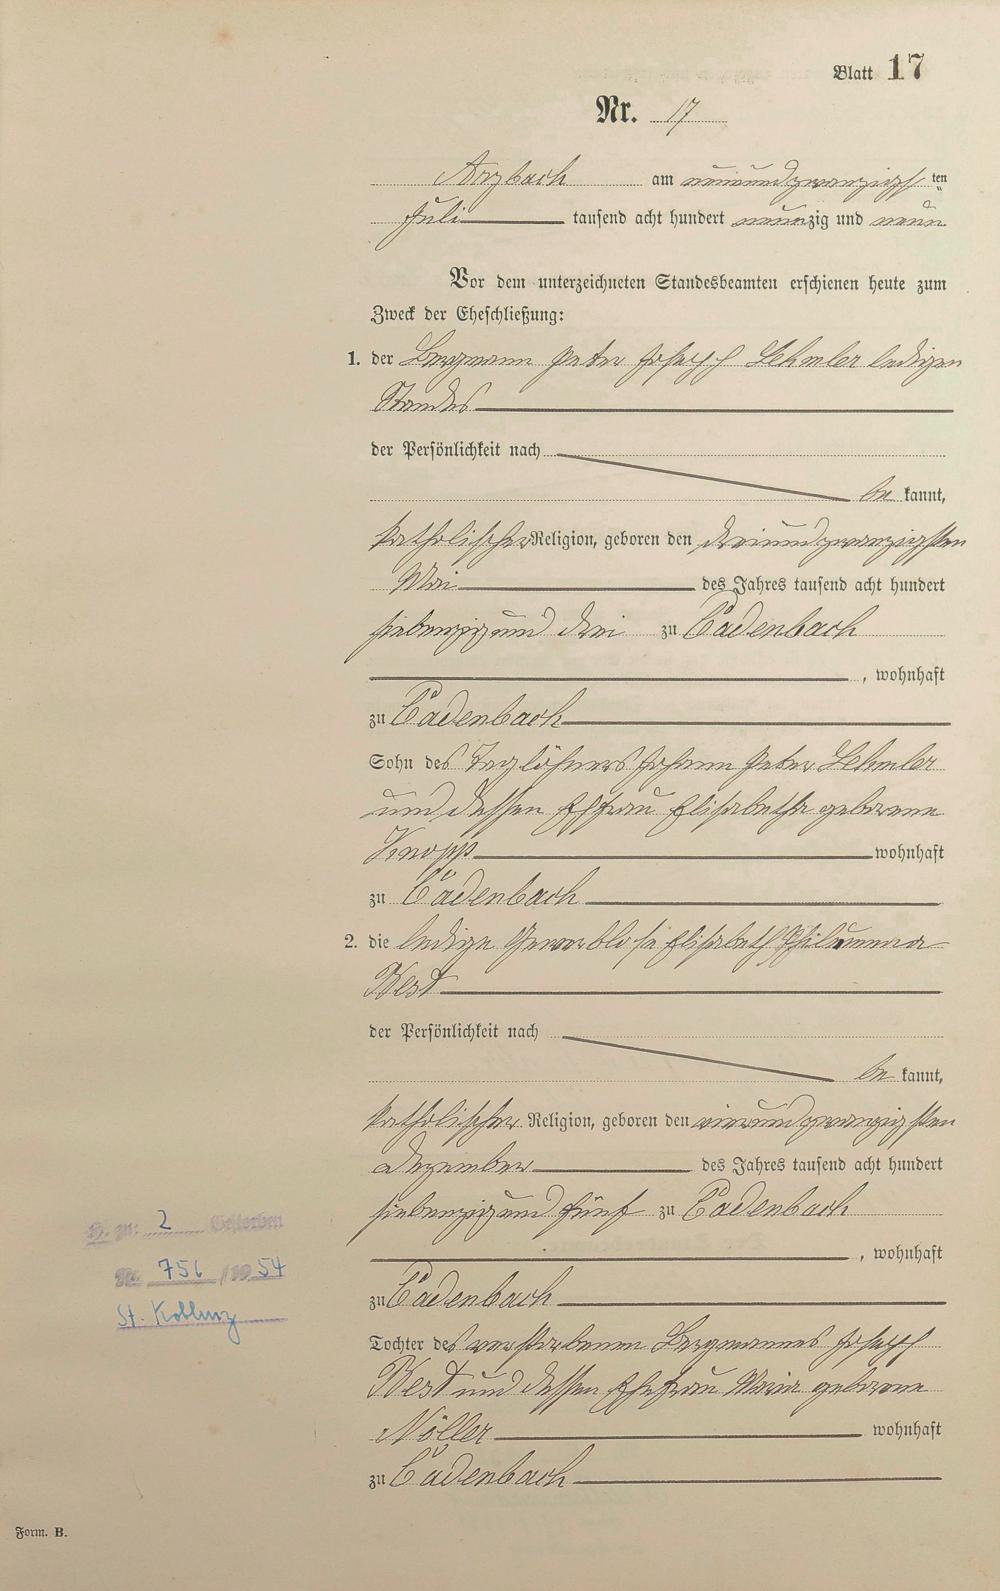 Blatt 17
Nr. 17
Arzbach am neunundzwanzigsten
Juli tausend acht hundert neunzig und neun
Vor dem unterzeichneten Standesbeamten erschienen heute zum
Zweck der Eheschließung:
1. der Bergmann Peter Joseph Lehmler ledigen
Standes
der Persönlichkeit nach
be kannt,
katholischer Religion, geboren den dreiundzwanzigsten
Mai des Jahres tausend acht hundert
siebenzig und drei zu Cadenbach
, wohnhaft
zu Cadenbach
Sohn des Taglöhners Johann Peter Lehmler
und dessen Ehefrau Elisabetha geborene
Knopp wohnhaft
zu Cadenbach
2. die ledige Gewerblose Elisabeth Philumena
der Persönlichkeit nach
be kannt,
katholischer Religion, geboren den vierundzwanzigsten
Dezember des Jahres tausend acht hundert
siebenzig und fünf zu Cadenbach
, wohnhaft
zu Cadenbach
Tochter des verstorbenen Bergmannes Joseph
und dessen Ehefrau Maria geborene
Nöller wohnhaft
zu Cadenbach
H. zu: 2 Gestorben
Nr. 756 /19 54
St. Koblenz
Form. B.